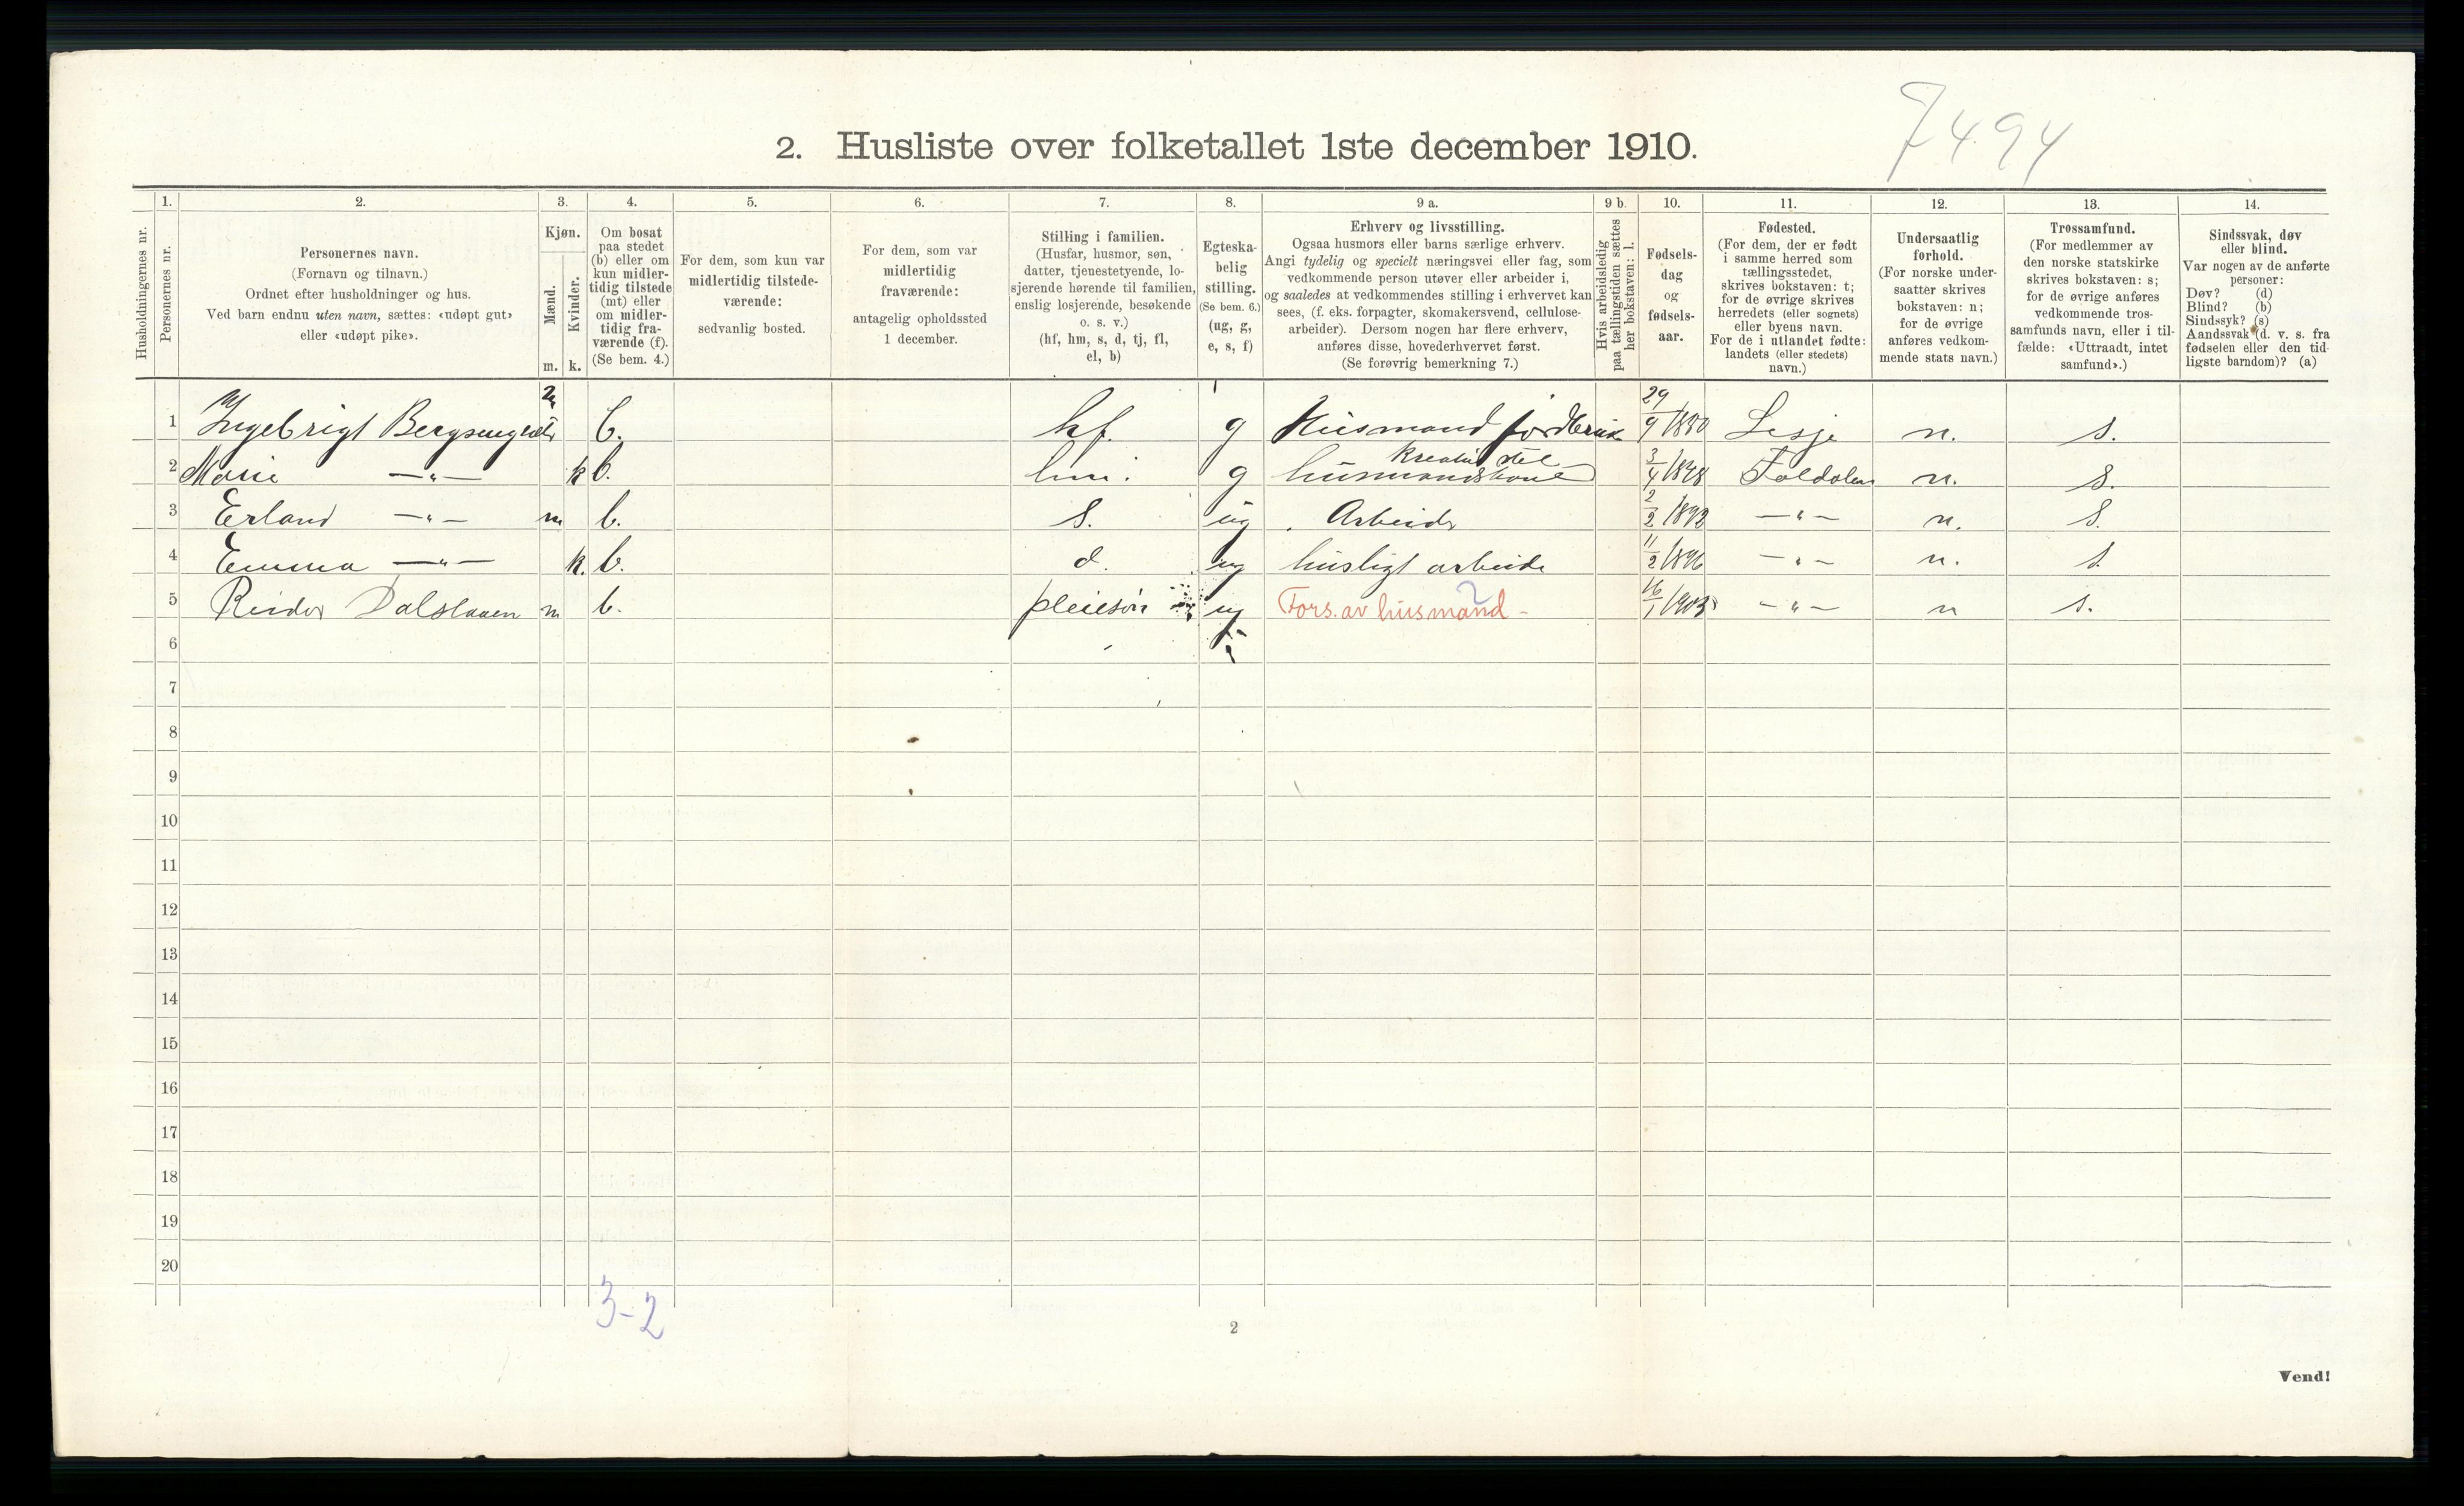 7494
2. Husliste over folketallet 1ste december 1910.
Husholdningernes nr.
1.
Personernes nr.
2.
Personernes navn.
(Fornavn og tilnavn.)
Ordnet efter husholdninger og hus.
Ved barn endnu uten navn, sættes: «udøpt gut»
eller «udøpt pike».
3.
Kjøn.
Mænd.
Kvinder.
m. k.
4.
Om bosat
paa stedet
(b) eller om
kun midler-
tidig tilstede
(mt) eller
om midler-
tidig fra-
værende (f).
(Se bem. 4.)
5.
For dem, som kun var
midlertidig tilstede-
værende:
sedvanlig bosted.
6.
For dem, som var
midlertidig
fraværende:
antagelig opholdssted
1 december.
7.
Stilling i familien.
(Husfar, husmor, søn,
datter, tjenestetyende, lo-
sjerende hørende til familien,
enslig losjerende, besøkende
o. s. v.)
(hf, hm, s, d, tj, fl,
el, b)
8.
Egteska-
belig
stilling.
(Se bem. 6.)
(ug, g,
e, s, f)
9 a.
Erhverv og livsstilling.
Ogsaa husmors eller barns særlige erhverv.
Angi tydelig og specielt næringsvei eller fag, som
vedkommende person utøver eller arbeider i,
og saaledes at vedkommendes stilling i erhvervet kan
sees, (f. eks. forpagter, skomakersvend, cellulose-
arbeider). Dersom nogen har flere erhverv,
anføres disse, hovederhvervet først.
(Se forøvrig bemerkning 7.)
9 b.
Hvis arbeidsledig
paa tællingstiden sættes
her bokstaven: l.
10.
Fødsels-
dag
og
fødsels-
aar.
11.
Fødested.
(For dem, der er født
i samme herred som
tællingsstedet,
skrives bokstaven: t;
for de øvrige skrives
herredets (eller sognets)
eller byens navn.
For de i utlandet fødte:
landets (eller stedets)
navn.)
12.
Undersaatlig
forhold.
(For norske under-
saatter skrives
bokstaven: n;
for de øvrige
anføres vedkom-
mende stats navn.)
13.
Trossamfund.
(For medlemmer av
den norske statskirke
skrives bokstaven: s;
for de øvrige anføres
vedkommende tros-
samfunds navn, eller i til-
fælde: «Uttraadt, intet
samfund».)
14.
Sindssvak, døv
eller blind.
Var nogen av de anførte
personer:
Døv? (d)
Blind? (b)
Sindssyk? (s)
Aandssvak (d. v. s. fra
fødselen eller den tid-
ligste barndom)? (a)
1 Ingebrigt m b. hf. g Husmand jordbruk kreaturstel 29/9 1850 Lesje n. s.
2 Marie —"— k b. hm. g husmandskone 3/4 1848 Foldalen n. s.
3 Erland —"— m b. s. ug Arbeide 2/2 1892 —"— n. s.
4 Emma —"— k. b. d. ug husligt arbeide 11/2 1896 —"— n. s
5 Reidor m b. pleiesøn ug Fors. av husmand - 2 16/1 1903 —"— n s.
6
7
8
9
10
11
12
13
14
15
16
17
18
19
20
3-2
2
Vend!